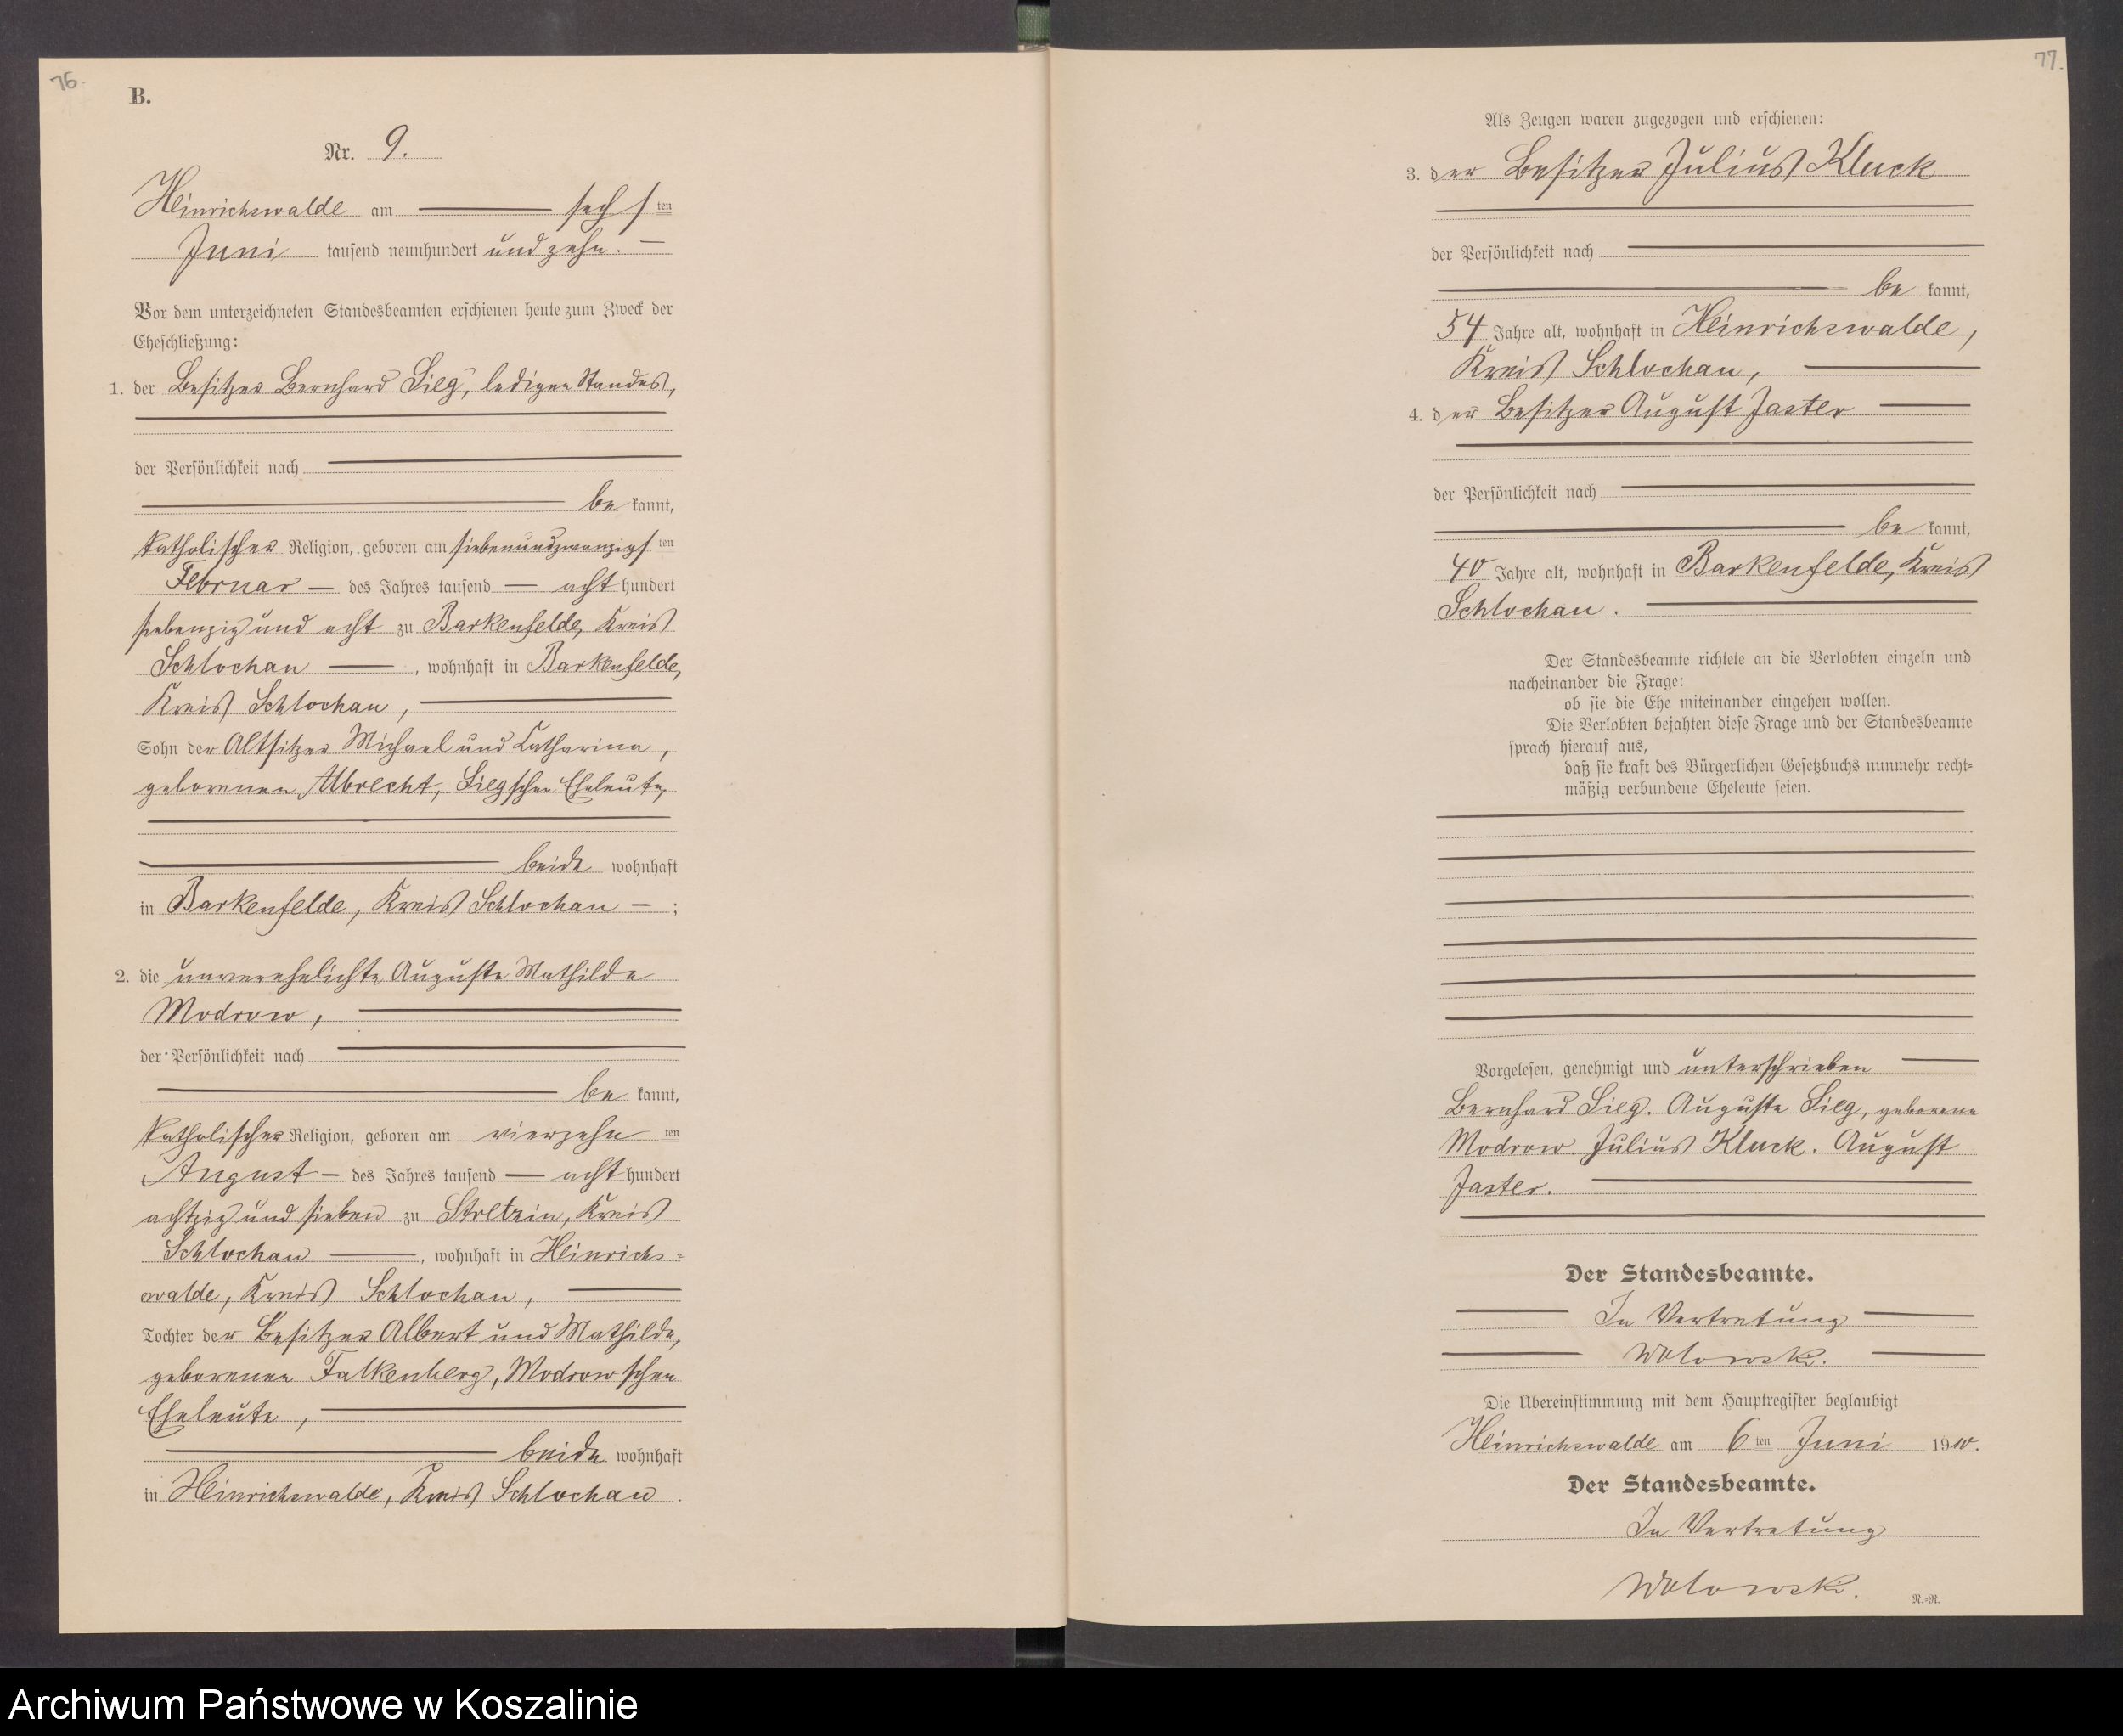 76.
B.
Nr. 9.
Heinrichswalde am sechsten
Juni tausend neunhundert und zehn.
Vor dem unterzeichneten Standesbeamten erschienen heute zum Zweck der
Eheschließung:
1. der Besitzer Bernhard Sieg, ledigen Standes,
der Persönlichkeit nach
be kannt,
katholischer Religion, geboren am siebenundzwanzigsten
Februar des Jahres tausend acht hundert
siebenzig und acht zu Barkenfelde, Kreis
Schlochau, wohnhaft in Barkenfelde,
Kreis Schlochau,
Sohn der Altsitzer Michael und Catharina,
geborenen Albrecht, Siegschen Eheleute,
beide wohnhaft
in Barkenfelde, Kreis Schlochau ;
2. die unverehelichte Auguste Mathilde
Modrow,
der Persönlichkeit nach
be kannt,
katholischer Religion, geboren am vierzehn ten
August des Jahres tausend acht hundert
achtzig und sieben zu Stretzin, Kreis
Schlochau, wohnhaft in Heinrichs=
walde, Kreis Schlochau,
Tochter der Besitzer Albert und Mathilde,
geborenen Falkenberg, Modrow'schen
Eheleute,
beide wohnhaft
in Heinrichswalde, Kreis Schlochau.
77.
Als Zeugen waren zugezogen und erschienen:
3. der Besitzer Julius Kluck
der Persönlichkeit nach
be kannt,
54 Jahre alt, wohnhaft in Heinrichswalde,
Kreis Schlochau,
4. der Besitzer August Jaster
der Persönlichkeit nach
be kannt,
40 Jahre alt, wohnhaft in Barkenfelde, Kreis
Schlochau.
Der Standesbeamte richtete an die Verlobten einzeln und
nacheinander die Frage:
ob sie die Ehe miteinander eingehen wollen.
Die Verlobten bejahten diese Frage und der Standesbeamte
sprach hierauf aus,
daß sie kraft des Bürgerlichen Gesetzbuchs nunmehr recht=
mäßig verbundene Eheleute seien.
Vorgelesen, genehmigt und unterschrieben
Bernhard Sieg. Auguste Sieg, geborene
Modrow. Julius Kluck. August
Jaster.
Der Standesbeamte.
In Vertretung
Wolowski.
Die Übereinstimmung mit dem Hauptregister beglaubigt
Heinrichswalde am 6 ten Juni 1910.
Der Standesbeamte.
In Vertretung
Wolowski.
R.=R.
Archiwum Państwowe w Koszalinie